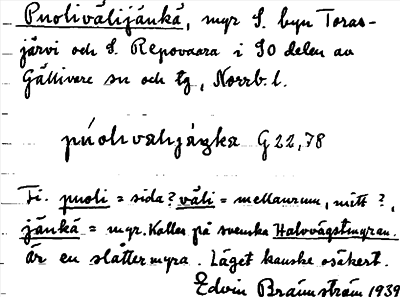 Puolivälijänkä, myr S. byn Toras-
järvi och S. Repovaara i SO delen av
Gällivare sn och tg, Norrb. l.
púoliválijáŋka G 22,78
Fi. puoli = sida? väli = mellanrum, mitt?,
jänkä = myr. Kallas på svenska Halvvägstmyran.
Är en slåttermyra. Läget kanske osäkert.
Edvin Brännström 1939